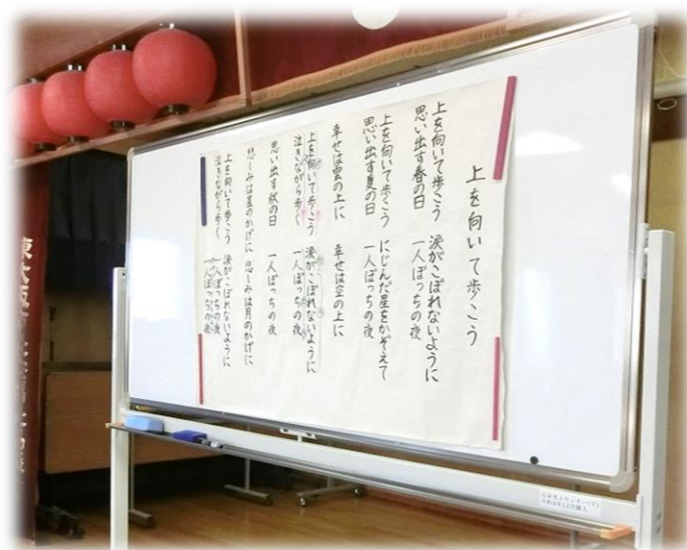 上を向いて歩こう
上を向いて歩こう 涙がこぼれないように
思い出す春の日 一人ぽっちの夜
上を向いて歩こう にじんだ星をかぞえて
思い出す夏の日 一人ぽっちの夜
幸せは雲の上に 幸せは空の上に
上を向いて歩こう 涙がこぼれないように
泣きながら歩く 一人ぽっちの夜
思い出す秋の日 一人ぽっちの夜
悲しみは星のかげに 悲しみは月のかげに
上を向いて歩こう 涙がこぼれないように
泣きながら歩く 一人ぽっちの夜
一人ぽっちの夜